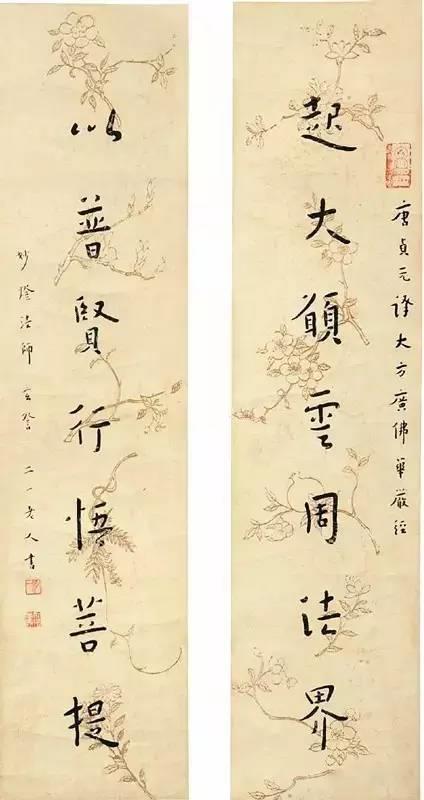 唐貞元譯大方廣佛華嚴經
起大願雲周法界
以普賢行悟菩提
妙法師 二一老人書